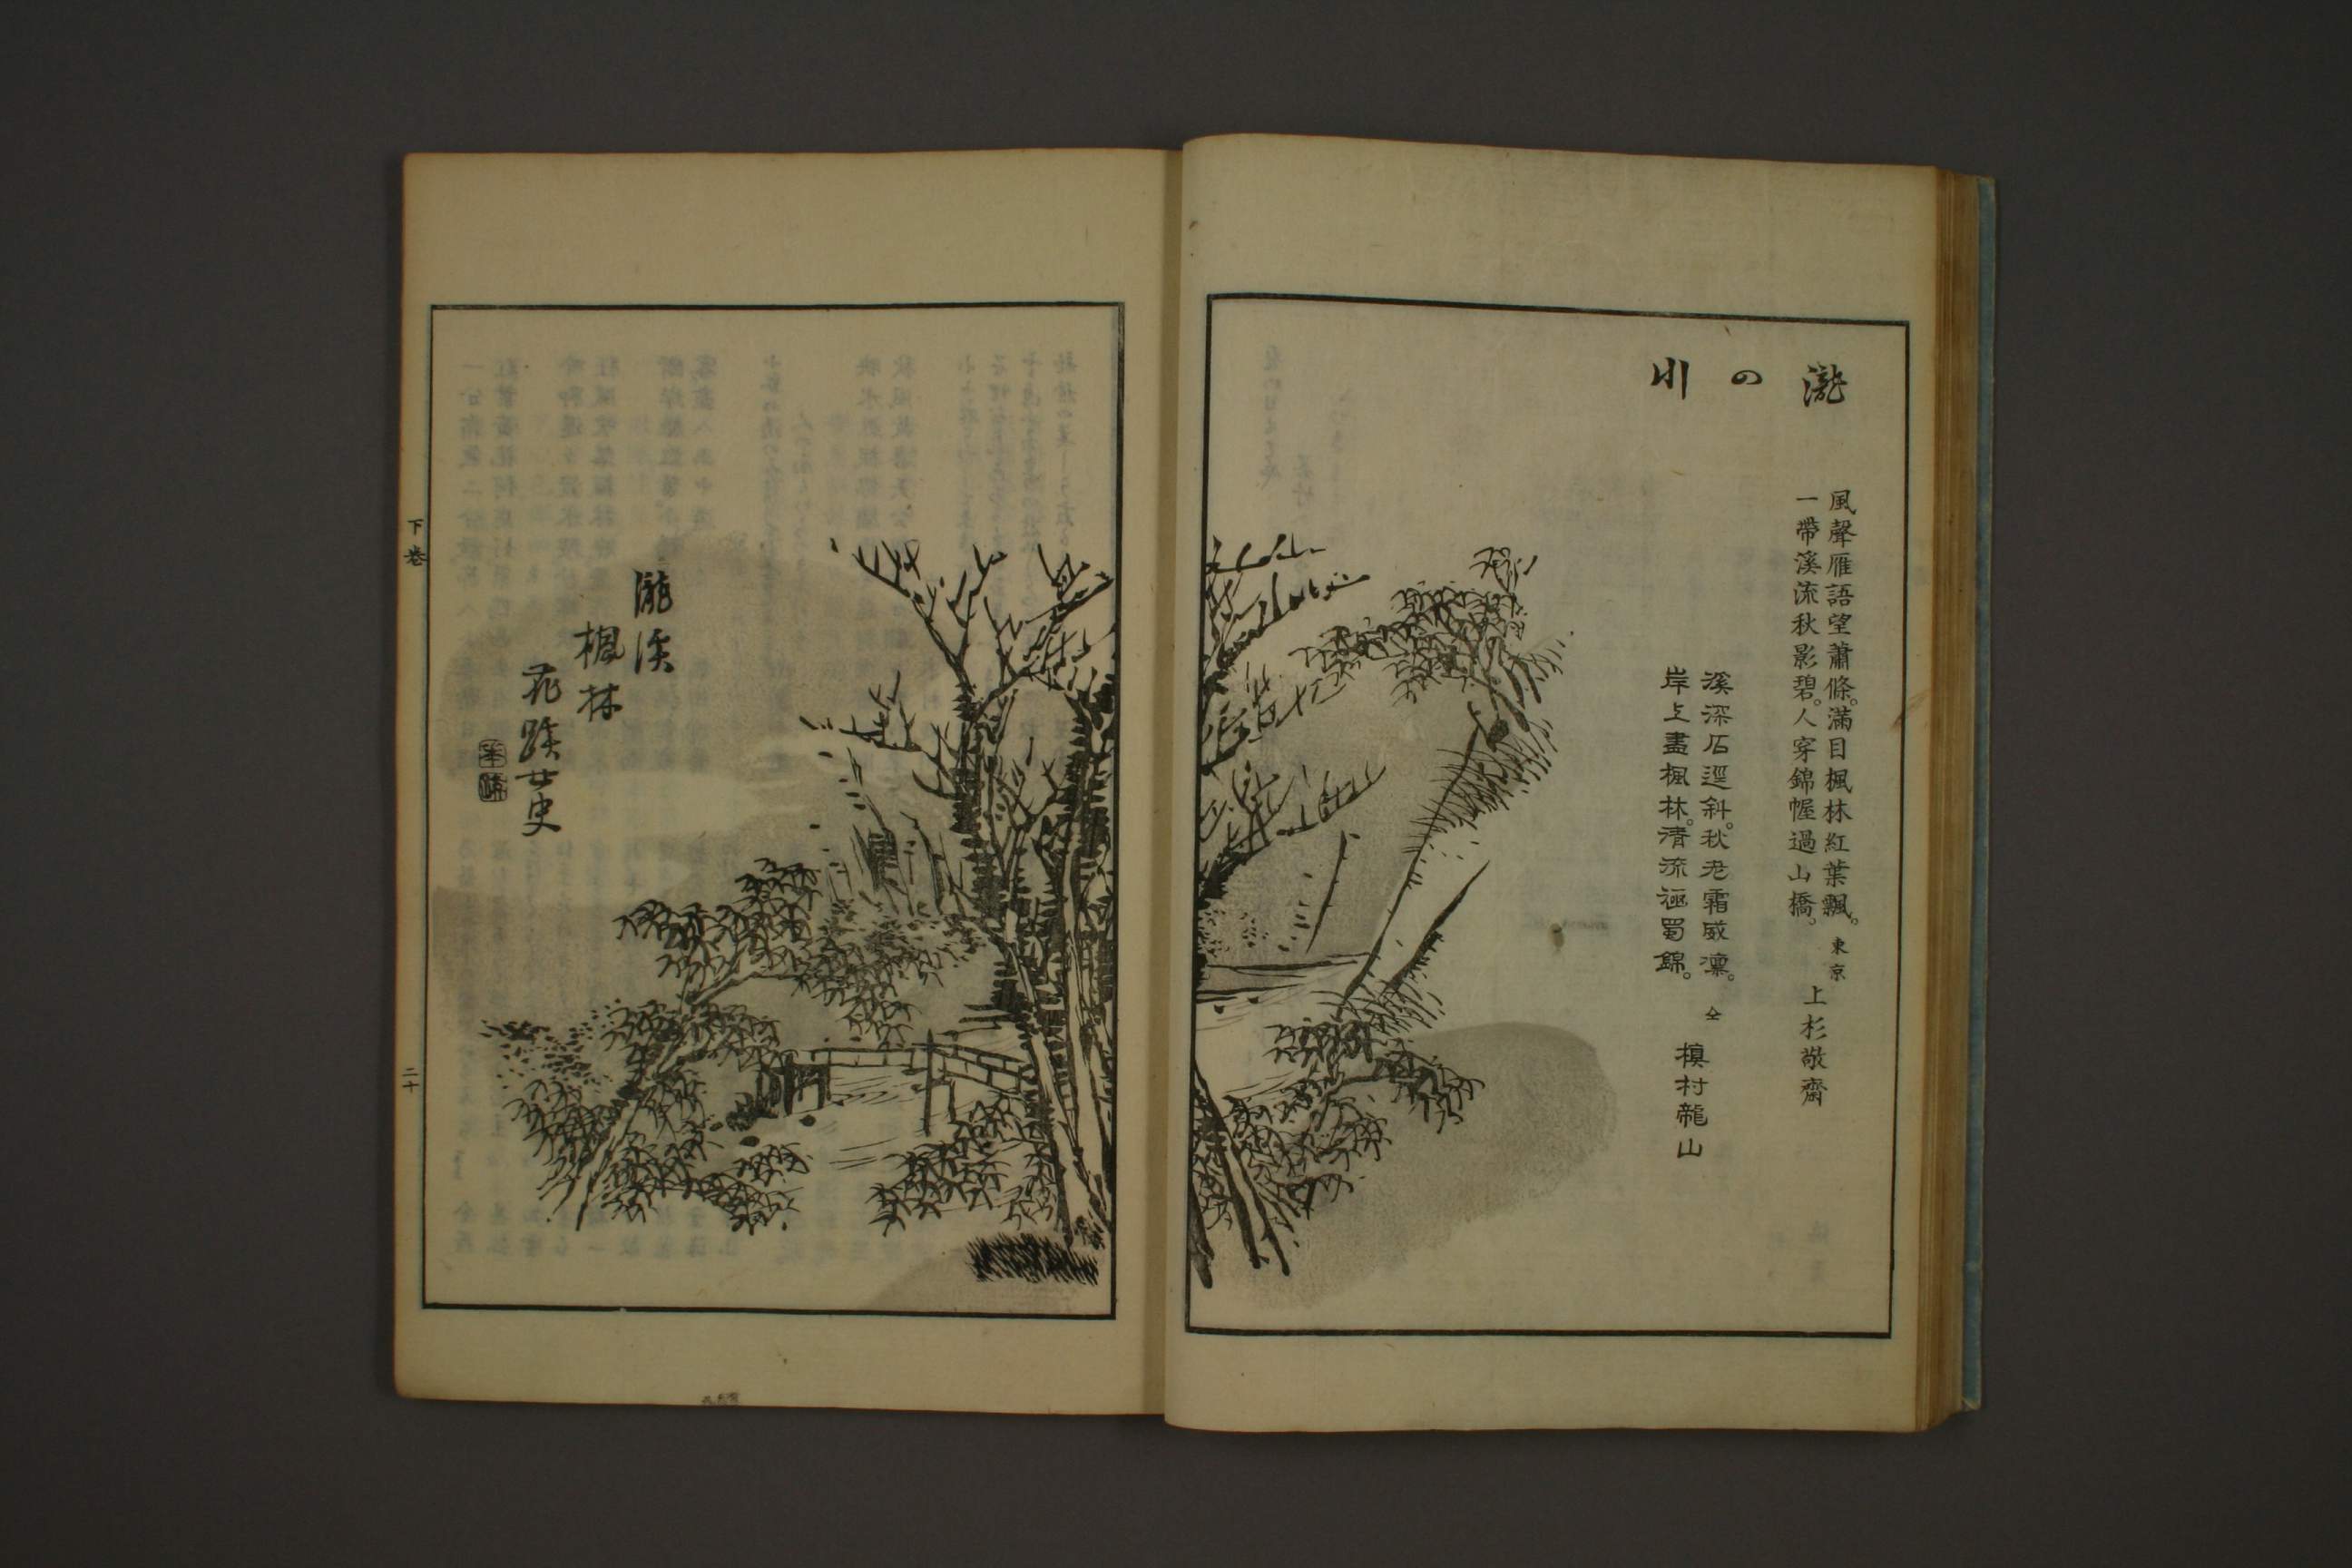 瀧の川
風聲雁語望蕭條。滿目楓林紅葉飄。
一帶溪流秋影碧。人穿錦幄過山橋。
東京 上杉敬齋
溪深石逕斜。秋老霜威凛。
岸上盡楓林。清流極蜀錦。
仝 槙村龍山
瀧溪
楓林
花蹊女史
下卷
二十